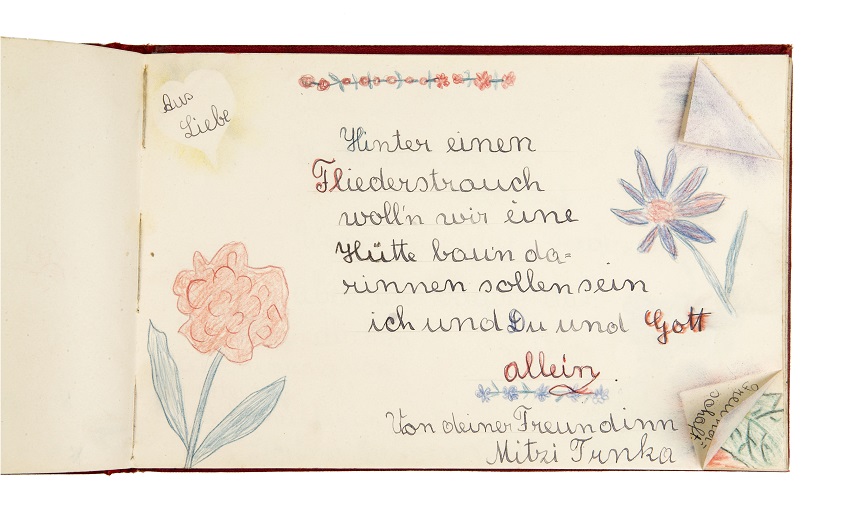 Aus
Liebe
Hinter einen
Fliederstrauch
woll'n wir eine
Hütte bau'n da=
rinnen sollen sein
ich und Du und Gott
allein.
Von deiner Freundinn
Mitzi Trnka
schaft